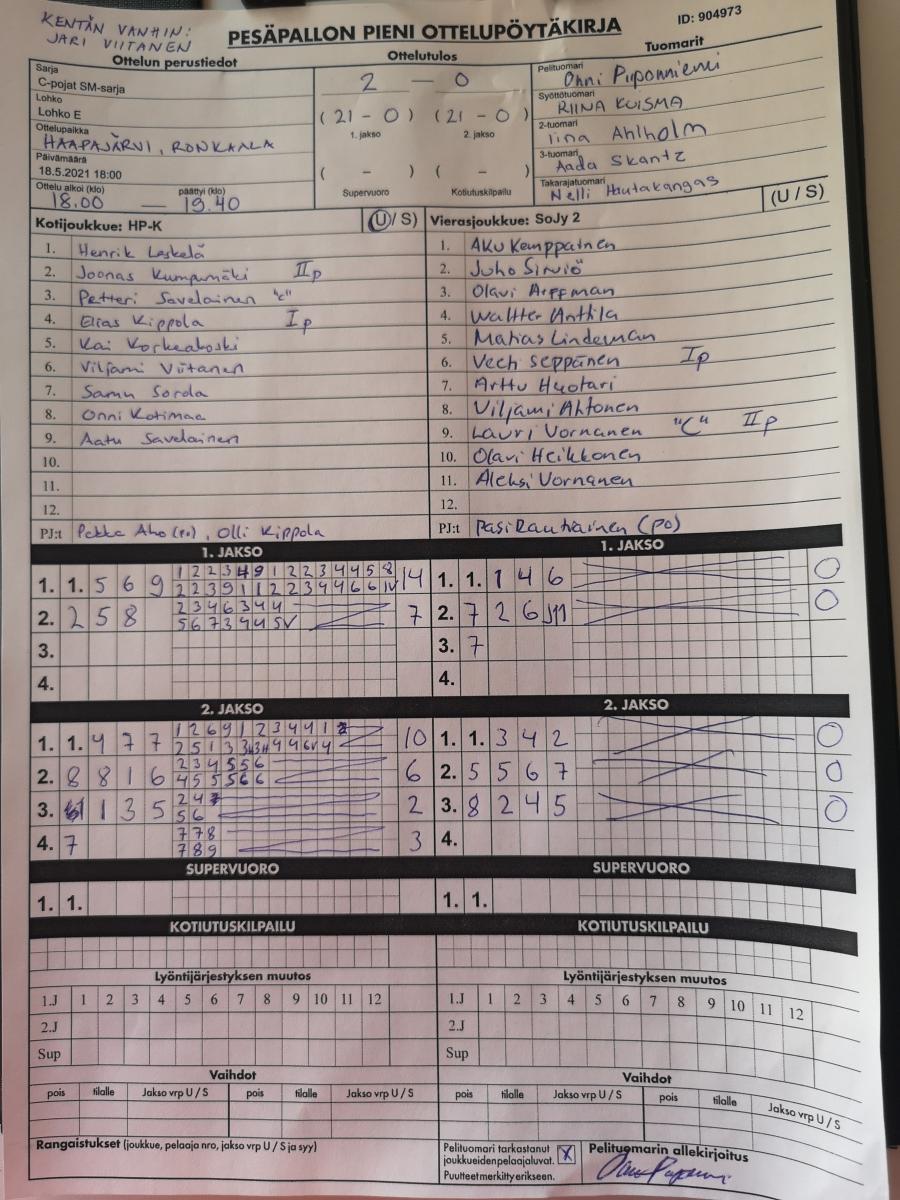 KENTÄN VANHIN:
JARI VIITANEN
PESÄPALLON PIENI OTTELUPÖYTÄKIRJA
ID: 904973
Ottelun perustiedot
Ottelutulos
Tuomarit
Sarja
C-pojat SM-sarja
Lohko
Lohko E
Ottelupaikka
HAAPAJÄRVI, RONKAALA
Päivämäärä
18.5.2021 18:00
Ottelu alkoi (klo) päättyi (klo)
18.00 — 19.40
2 — 0
(21 - 0) (21 - 0)
1. jakso 2. jakso
( - ) ( - )
Supervuoro Kotiutuskilpailu
Pelituomari
Onni Piponniemi
Syöttötuomari
RIINA KUISMA
2-tuomari
Iina Ahlholm
3-tuomari
Aada Skantz
Takarajatuomari
Nelli Hautakangas
Kotijoukkue: HP-K (U/S)
1. Henrik Leskelä
2. Joonas Kumpumäki IIp
3. Petteri Savelainen "c"
4. Elias Kippola Ip
5. Kai Korkeakoski
6. Viljami Viitanen
7. Samu Sorola
8. Onni Kotimaa
9. Aatu Savelainen
10.
11.
12.
PJ:t Pekka Aho (PJ), Olli Kippola
Vierasjoukkue: SoJy 2 (U/S)
1. Aku Kemppainen
2. Juho Sirviö
3. Olavi Arffman
4. Waltter Anttila
5. Matias Lindeman
6. Veeti Seppänen Ip
7. Arttu Huotari
8. Viljami Ahtonen
9. Lauri Vornanen "C" IIp
10. Olavi Heikkonen
11. Aleksi Vornanen
12.
PJ:t Pasi Rautiainen (PJ)
1. JAKSO
1. 1. 5 6 9 14
1 2 2 3 4 9 1 2 2 3 4 4 5 8
2 2 3 9 1 1 2 2 3 4 4 6 6 IV
2. 2 5 8 7
2 3 4 6 3 4 4
5 6 7 3 4 4 5V
3.
4.
1. JAKSO
1. 1. 1 4 6 0
2. 7 2 6 0
3. 7
4.
2. JAKSO
1. 1. 4 7 7 10
1 2 6 9 1 2 3 4 4 1
2. 8 8 1 6 6
2 3 4 5 5 6
4 5 5 5 6 6
3. 1 3 5 2
2 4
5 6
4. 7 3
7 7 8
7 8 9
2. JAKSO
1. 1. 3 4 2 0
2. 5 5 6 7 0
3. 8 2 4 5 0
4.
SUPERVUORO
1. 1.
SUPERVUORO
1. 1.
KOTIUTUSKILPAILU
KOTIUTUSKILPAILU
Lyöntijärjestyksen muutos
1.J 1 2 3 4 5 6 7 8 9 10 11 12
2.J
Sup
Lyöntijärjestyksen muutos
1.J 1 2 3 4 5 6 7 8 9 10 11 12
2.J
Sup
Vaihdot
pois tilalle Jakso vrp U / S pois tilalle Jakso vrp U / S
Vaihdot
pois tilalle Jakso vrp U / S pois tilalle Jakso vrp U / S
Rangaistukset (joukkue, pelaaja nro, jakso vrp U / S ja syy)
Pelituomari tarkastanut
joukkueiden pelaajaluvat. X
Puutteet merkitty erikseen.
Pelituomarin allekirjoitus